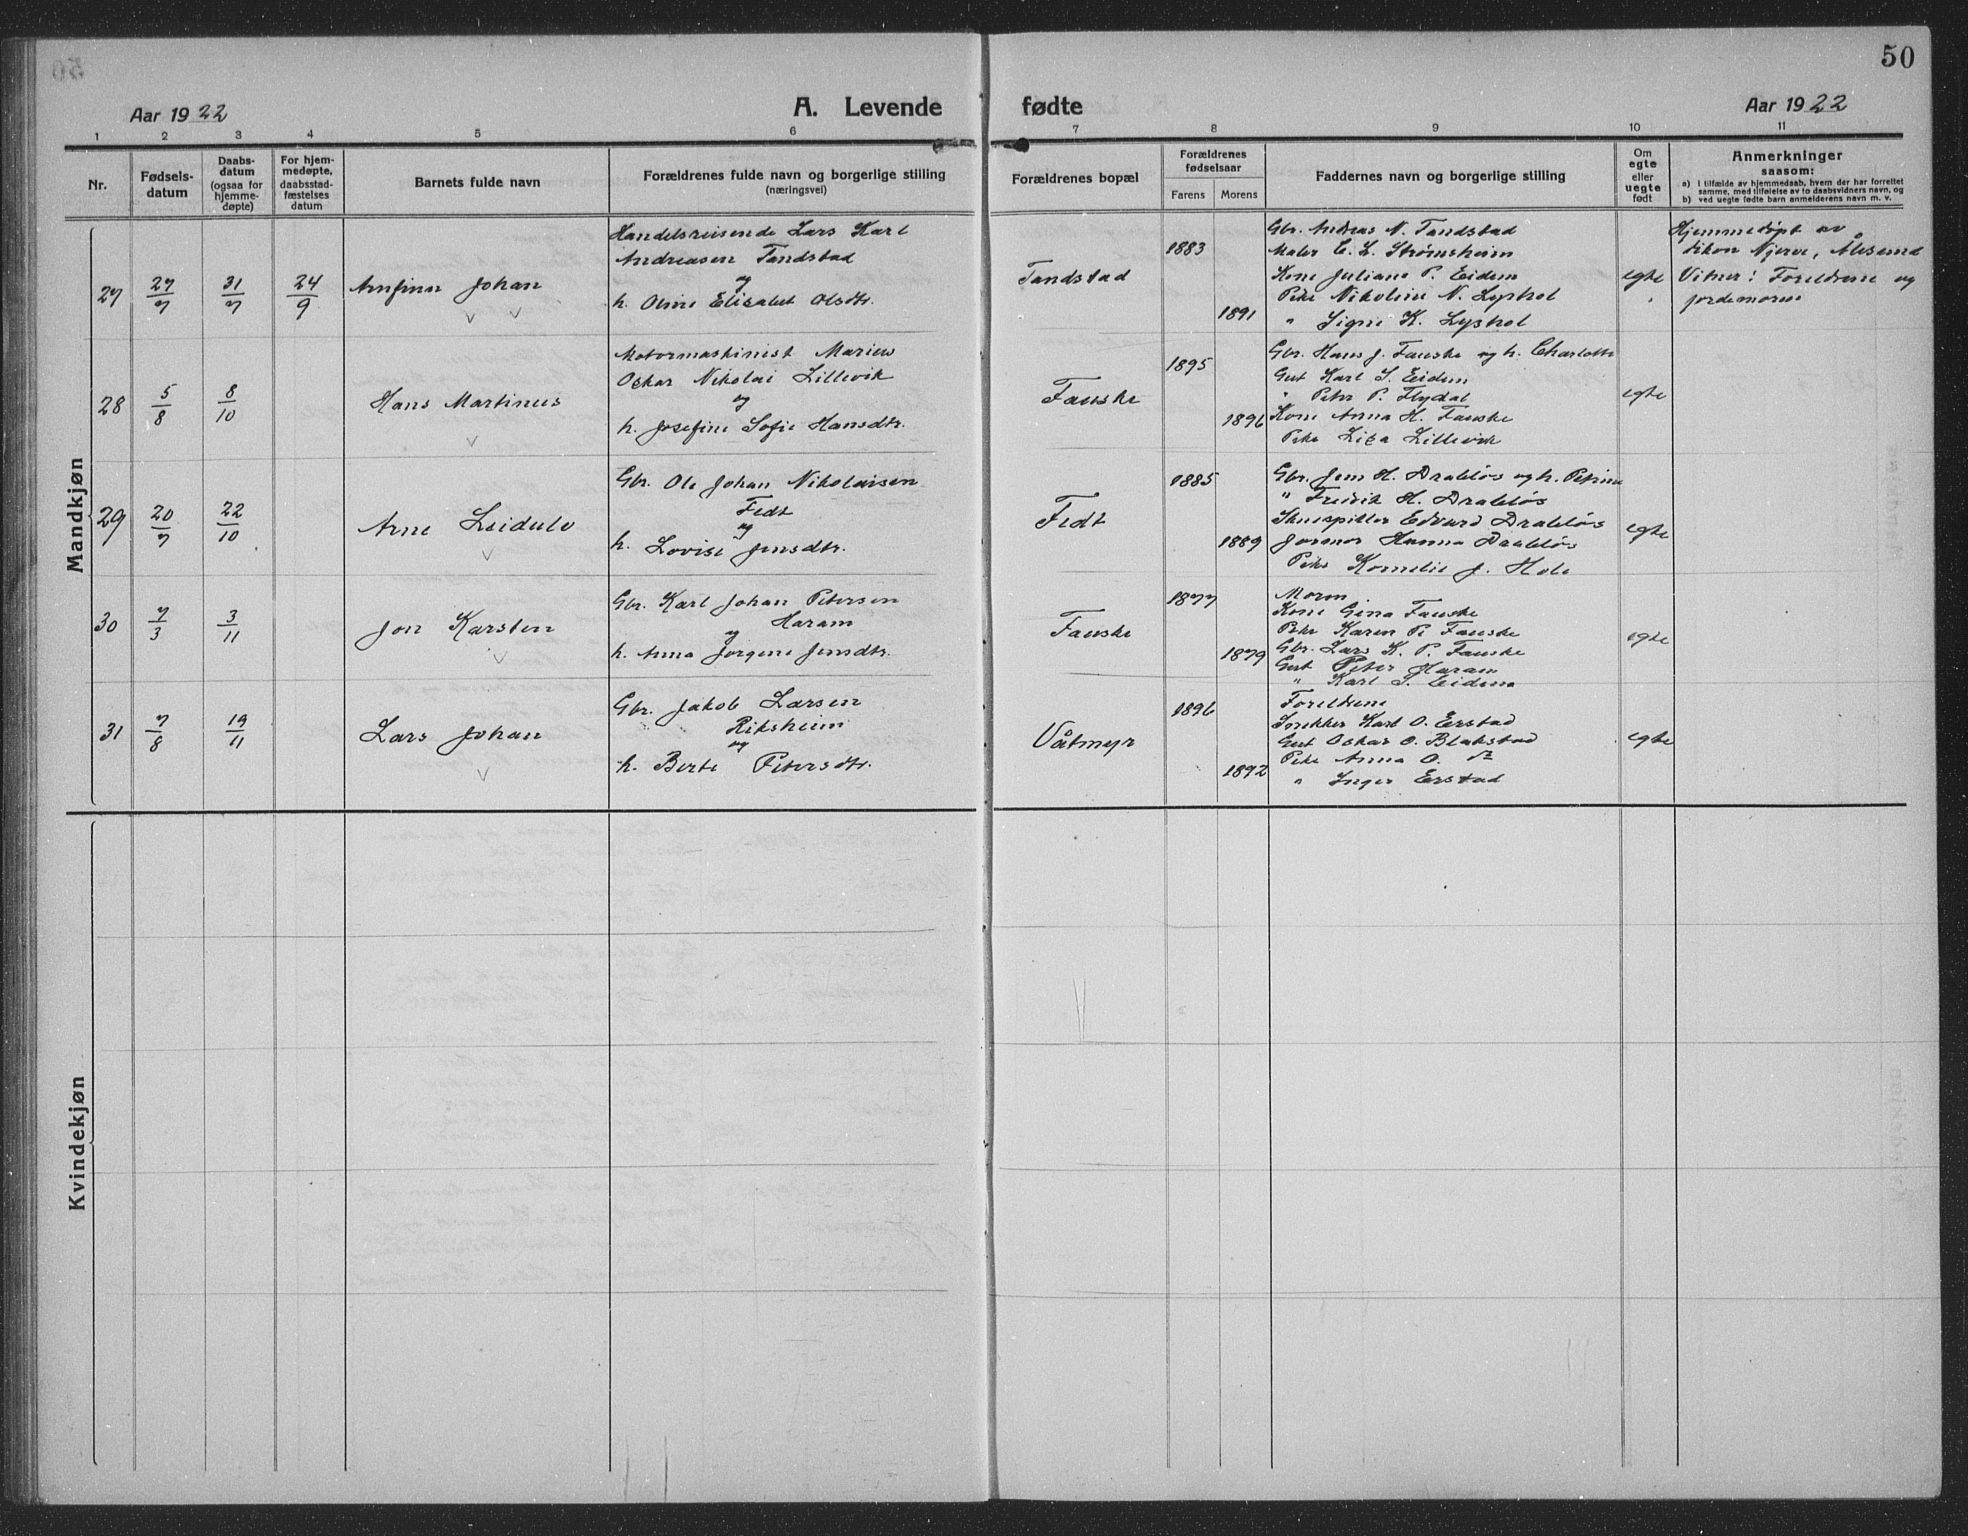 50
Aar 1922
A. Levende fødte
Aar 1922
1 2 3 4 5 6 7 8 9 10 11
Nr.
Fødsels-
datum
Daabs-
datum
(ogsaa for
hjemme-
døpte)
For hjem-
medøpte,
daabsstad-
fæstelses
datum
Barnets fulde navn
Forældrenes fulde navn og borgerlige stilling
(næringsvei)
Forældrenes bopæl
Forældrenes
fødselsaar
Farens Morens
Faddernes navn og borgerlige stilling
Om
egte
eller
uegte
født
Anmerkninger
saasom:
a) i tilfælde av hjemmedaab, hvem der har forrettet
samme, med tilføielse av to daabsvidners navn, og
b) ved uegte fødte barn anmelderens navn m. v.
Mandkjøn
27
27/7
31/7
24/9
Arnfinn Johan
Handelsreisende Lars Karl
Andreasen Tandstad
og
h. Oline Elisabet Olsdtr.
Tandstad
1883
1891
Gbr. Andreas N. Tandstad
Maler E. L. Strømsheim
Kone Juliane P. Eidem
Pike Nikoline N. Lyshol
" Signe K. Lyshol
egte
Hjemmedøpt av
dikon Njerve, Ålesund
Vitner: Foreldrene og
jordemoren
28
5/8
8/10
Hans Martinus
Motormaskinist Marius
Oskar Nikolai Lillevik
og
h. Josefine Sofie Hansdtr.
Fauske
1895
1896
Gbr. Hans J. Fauske og h. Charlotte
Gut Karl S. Eidem
" Peter P. Flydal
Kone Anna H. Fauske
Pike Lisa Lillevik
egte
29
20/7
22/10
Arne Leidulv
Gbr. Ole Johan Nikolaisen
Fedt
og
h. Lovise Jensdtr.
Fedt
1885
1889
Gbr. Jens H. Drabløs og h. Petrine
" Fredrik H. Drabløs
Edvard Drabløs
Jormor Hanna Drabløs
Pike Kornelie J. Hole
egte
30
7/3
3/11
Jon Karsten
Gbr. Karl Johan Petersen
Haram
og
h. Anna Jørgine Jensdtr.
Fauske
1877
1879
Moren
Kone Gina Fauske
Pike Karen P. Fauske
Gbr. Lars K. P. Fauske
Gut Peter Haram
" Karl S. Eidem
egte
31
7/8
19/11
Lars Johan
Gbr. Jakob Larsen
Riksheim
og
h. Berte Petersdtr.
Våtmyr
1896
1892
Foreldrene
Snekker Karl O. Erstad
Gut Oskar O. Blakstad
Pike Anna O. do
" Inger Erstad
egte
Kvindekjøn